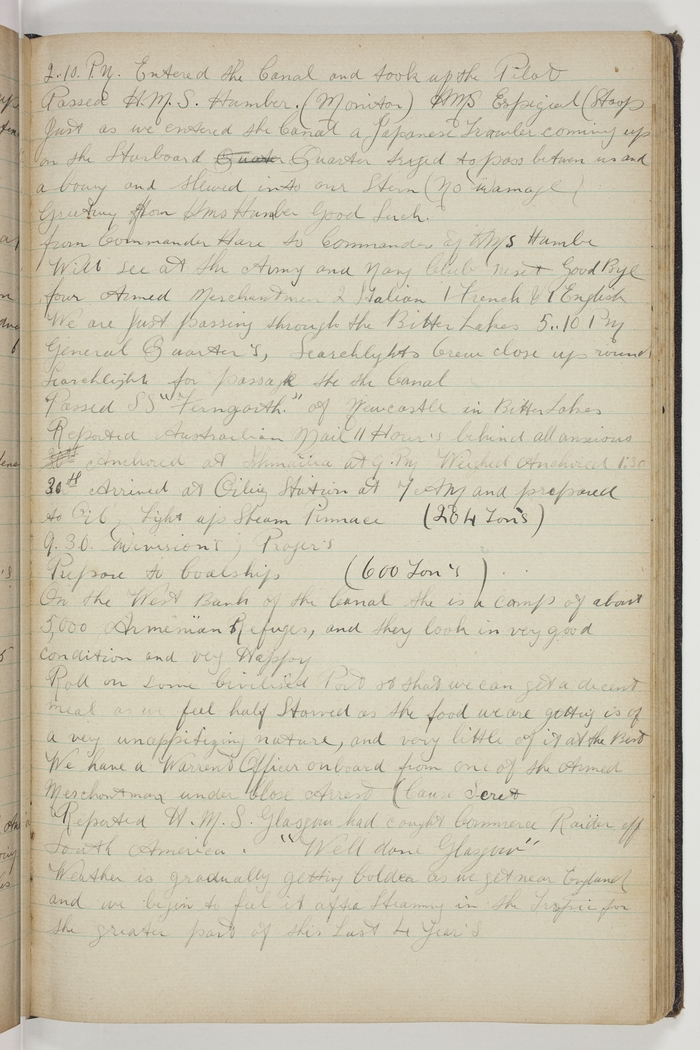 2.10. P.M. Entered the Canal and took up the Pilot
Passed H.M.S. Humber. (Monitor) HMS Espigiel (Sloop
Just as we entered the Canal a Japanese Trawler coming up
on the Starboard Quater Quarter tryed to pass betwen us and
a bouy and slewed into our Stern (No Damage)
Greeting from Hms Humber Good Luck.
from Commander Hare to Commander of HMS Humbe
Will see at the Army and Navy Club next Good Bye
four Armed Merchantmen 2 Italian 1 French & 1 English
We are Just passing through the Bitter Lakes 5.10 PM
General Quarter's, Searchlights Crew close up round
Searchlight for passage the the Canal
Passed SS "Ferngarth." of Newcastle in Bitter Lakes
Reported Australian Mail 11 Hour's behind all ansious
30th Anchored at Ishmailia at 9. PM Weighed Anchored 1.30
30th Arrived at Oiling Station at 7 AM and prepared
to Oil, Light up Steam Pinnace (284 Ton's)
9.30. Division's; Prayer's
Prepare to Coalship (600 Ton's)
On the West Bank of the Canal the is a camp of about
5,000 Armenian Refuges, and they look in very good
condition and very Happy
Roll on some Civilised Port so that we can get a decent
meal as we feel half Starved as the food we are getting is of
a very unappitizing nature, and very little of it at the Best
We have a Warrent Officer onboard from one of the Armed
Merchantman under Close Arrest (Cause Secret
Reported H.M.S. Glasgow had caught Commerce Raider off
South America. "Well done Glasgow"
Weather is gradually getting Colder as we get near England
and we begin to feel it after Steaming in the Tropic for
the greater part of this Last 4 Year's